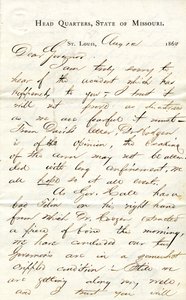 HEAD QUARTERS, STATE OF MISSOURI.
ST. LOUIS, Aug 12 186
Dear Governor
I am truly sorry to
hear of the accident which has
happened to you – I trust it
will not prove as disastrous
as we are fearful it must
From Davids letter Dr. Hodgen
is of the opinion, the breaking
of the arm may not be atten
ded with long confinement, we
all hope it at all events.
As Gov. Hall has a
bad felon on his right hand
from which Dr. Hodgen extracted
a piece of bone this morning,
we have concluded our two
governors are in a somewhat
crippled condition – Still we
are getting along very well,
and I trust you will